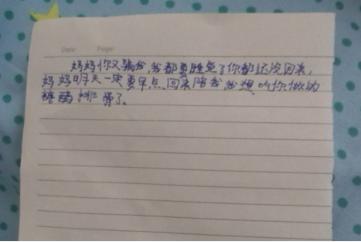 Date: Page:
妈妈你又骗我,我都要睡觉了你都还没回来,
妈妈明天一定要早点回来陪我我想吃你做的
糖醋排骨了。